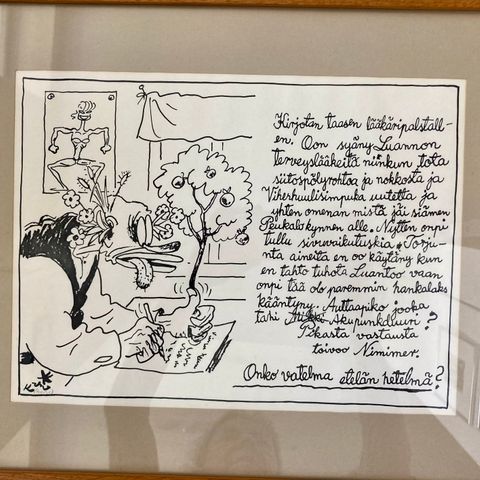 Kirjotan taasen lääkäripalstall-
en. Oon syäny Luannon
terveyslääkeitä niinkun tota
siitospölyrohtoa ja nokkosta ja
Viherhuulisimpuka uutetta ja
yhten omenan mistä jäi siämen
Peukalokynnen alle. Nytten onpi
tullu sivuvaikutuskia. Torju-
nta aineita en oo käytäny kun
en tahto tuhota Luantoo vaan
onpi tää olo paremmin hankalaks
kääntyny. Auttaapiko jooka
tahi Akupunkduuri?
Pikasta vastausta
toivoo Nimimer.
Onko vatelma etelän hetelmä?